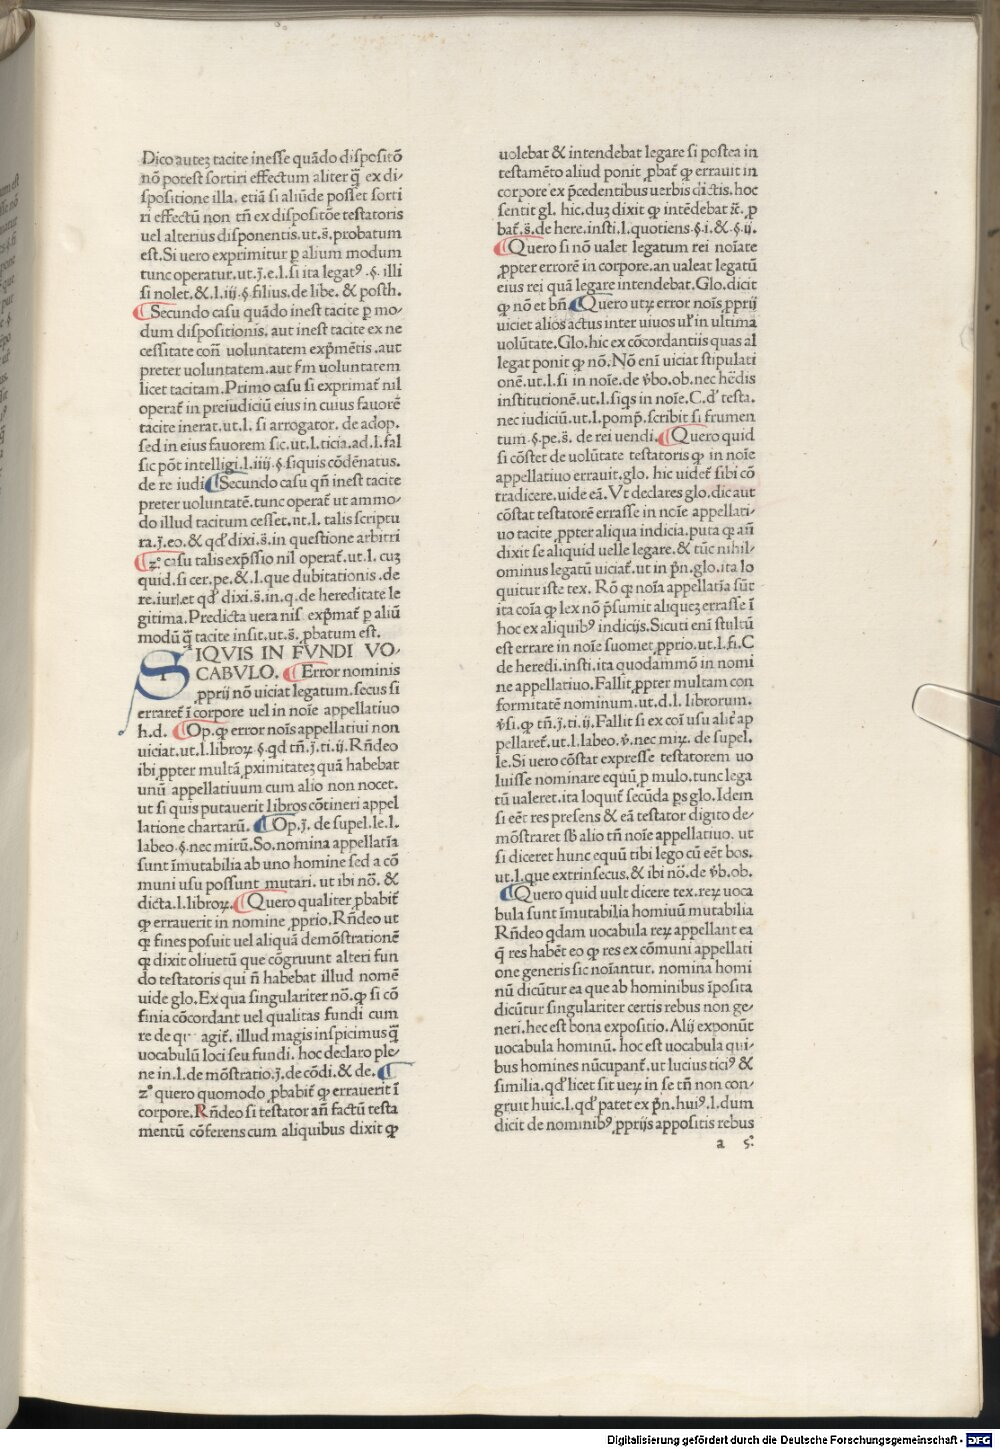 Dico auteꝫ tacite inesse quādo dispositō
nō potest sortiri effectum aliter q̄ ex di⸗
spositione illa. etiā si aliūde posset sorti
ri effectū non tn̄ ex dispositōe testatoris
uel alterius disponentis. ut. s̄. probatum
est. Si uero exprimitur ꝑ alium modum
tunc operatur. ut. j̄. e. l. si ita legatꝰ. §. illi
si nolet. & .l. iij. §. filius. de libe. & posth.
¶ Secundo casu quādo inest tacite ꝑ mo⸗
dum dispositionis. aut inest tacite ex ne
cessitate con̄ uoluntatem exp̄mētis. aut
preter uoluntatem. aut s̄m uoluntatem
licet tacitam. Primo casu si exprimat̄ nil
operat̄ in preiudiciū eius in cuius fauorē
tacite inerat. ut. l. si arrogator. de adop.
sed in eius fauorem sic. ut. l. ticia. ad. l. fal
sic pōt intelligi. l. iiij. §. siquis cōdēnatus.
de re iudi ¶ Secundo casu qn̄ inest tacite
preter uoluntatē. tunc operat̄ ut ammo⸗
do illud tacitum cesset. nt. l. talis scriptu
ra. j̄. eo. & qd̓ dixi. s̄. in questione arbitri
¶ zͦ. casu talis exp̄ssio nil operat̄. ut. l. cuꝫ
quid. si cer. pe. & .l. que dubitationis. de
re. iur. et qd̓ dixi. s̄. in. q. de hereditate le
gitima. Predicta uera nis̄ exp̄mat̄ ꝑ aliū
modū q̄ tacite insit. ut. s̄. ꝓbatum est.
SIQVIS IN FVNDI VO⸗
CABVLO. ¶ Error nominis
ꝓprij nō uiciat legatum. secus si
erraret̄ ī corpore uel in noīe appellatiuo
h. d. ¶ Op. ꝙ error noīs appellatiui non
uiciat. ut. l. libroꝝ. §. qd tn̄. j̄. ti. ij. Rn̄deo
ibi ꝓpter multā ꝓximitateꝫ quā habebat
unū appellatiuum cum alio non nocet.
ut si quis putauerit libros cōtineri appel
latione chartarū. ¶ Op. j̄. de supel. le. l.
labeo. §. nec mirū. So. nomina appellatīa
sunt īmutabilia ab uno homine sed a cō
muni usu possunt mutari. ut ibi nō. &
dicta. l. libroꝝ. ¶ Quero qualiter ꝓbabit̄
ꝙ errauerit in nomine ꝓprio. Rn̄deo ut
ꝙ fines posuit uel aliquā demōstrationē
ꝙ dixit oliuetū que cōgruunt alteri fun
do testatoris qui n̄ habebat illud nomē
uide glo. Ex qua singulariter nō. ꝙ si cō
finia cōcordant uel qualitas fundi cum
re de qu agit̄. illud magis inspicimus q̄
uocabulū loci seu fundi. hoc declaro ple⸗
ne in. l. de mōstratio. j̄. de cōdi. & de. ¶
zͦ quero quomodo ꝓbabit̄ ꝙ errauerit ī
corpore. Rn̄deo si testator an̄ factū testa
mentū cōferens cum aliquibus dixit ꝙ
uolebat & intendebat legare si postea in
testamēto aliud ponit ꝓbat̄ ꝙ errauit in
corpore ex p̄cedentibus uerbis dictis. hoc
sentit gl. hic. duꝫ dixit ꝙ intēdebat īc̄. ꝓ
bat̄. s̄. de here. insti. l. quotiens §. i. & §. ij.
¶ Quero si nō ualet legatum rei noīate
ꝓpter errorē in corpore. an ualeat legatū
eius rei quā legare intendebat. Glo. dicit
ꝙ nō et bn̄ ¶ Quero utꝝ error noīs ꝓprij
uiciet alios actus inter uiuos ul̓ in ultima
uolūtate. Glo. hic ex cōcordantiis quas al
legat ponit ꝙ nō. Nō enī uiciat stipulati
onē. ut. l. si in noīe. de v̄bo. ob. nec hēdis
institutionē. ut. l. siqs in noīe. C. d̓ testa.
nec iudiciū. ut. l. pomp̄. scribit si frumen
tum. §. pe. s̄. de rei uendi. ¶ Quero quid
si cōstet de uolūtate testatoris ꝙ in noīe
appellatiuo errauit. glo. hic uidet̄ sibi cō
tradicere. uide eā. Vt declares glo. dic aut
cōstat testatorē errasse in noīe appellati⸗
uo tacite ꝓpter aliqua indicia. puta ꝙ an̄
dixit se aliquid uelle legare. & tūc nihil⸗
ominus legatū uiciat̄. ut in p̄n. glo. ita lo
quitur iste tex. Rō ꝙ noīa appellatīa sūt
ita coīa ꝙ lex nō p̄sumit aliqueꝫ errasse ī
hoc ex aliquibꝰ indicijs. Sicuti enī stultū
est errare in noīe suomet ꝓprio. ut. l. fi. C
de heredi. insti. ita quodammō in nomi
ne appellatiuo. Fallit ꝓpter multam con
formitatē nominum. ut. d. l. librorum.
v̄si. ꝙ tn̄. j̄. ti. ij. Fallit si ex coī usu alit̄ ap
pellaret̄. ut. l. labeo. v̄. nec miꝝ. de supel.
le. Si uero cōstat expresse testatorem uo
luisse nominare equū ꝓ mulo. tunc lega
tū ualeret. ita loquit̄ secūda ps glo. Idem
si eēt res presens & eā testator digito de⸗
mōstraret sb̓ alio tn̄ noīe appellatiuo. ut
si diceret hunc equū tibi lego cū eēt bos.
ut. l. que extrinsecus. & ibi nō. de v̄b. ob.
¶ Quero quid uult dicere tex. reꝝ uoca
bula sunt īmutabilia homiuū mutabilia
Rn̄deo qdam uocabula reꝝ appellant ea
q̄ res habēt eo ꝙ res ex cōmuni appellati
one generis sic noīantur. nomina homi
nū dicūtur ea que ab hominibus īposita
dicūtur singulariter certis rebus non ge⸗
neri. hec est bona expositio. Alij exponūt
uocabula hominū. hoc est uocabula qui⸗
bus homines nūcupant̄. ut lucius ticiꝰ &
similia. qd̓ licet sit ueꝝ in se tn̄ non con⸗
gruit huic. l. qd̓ patet ex p̄n. huiꝰ. l. dum
dicit de nominibꝰ ꝓprijs appositis rebus
a 5.
Digitalisierung gefördert durch die Deutsche Forschungsgemeinschaft - DFG